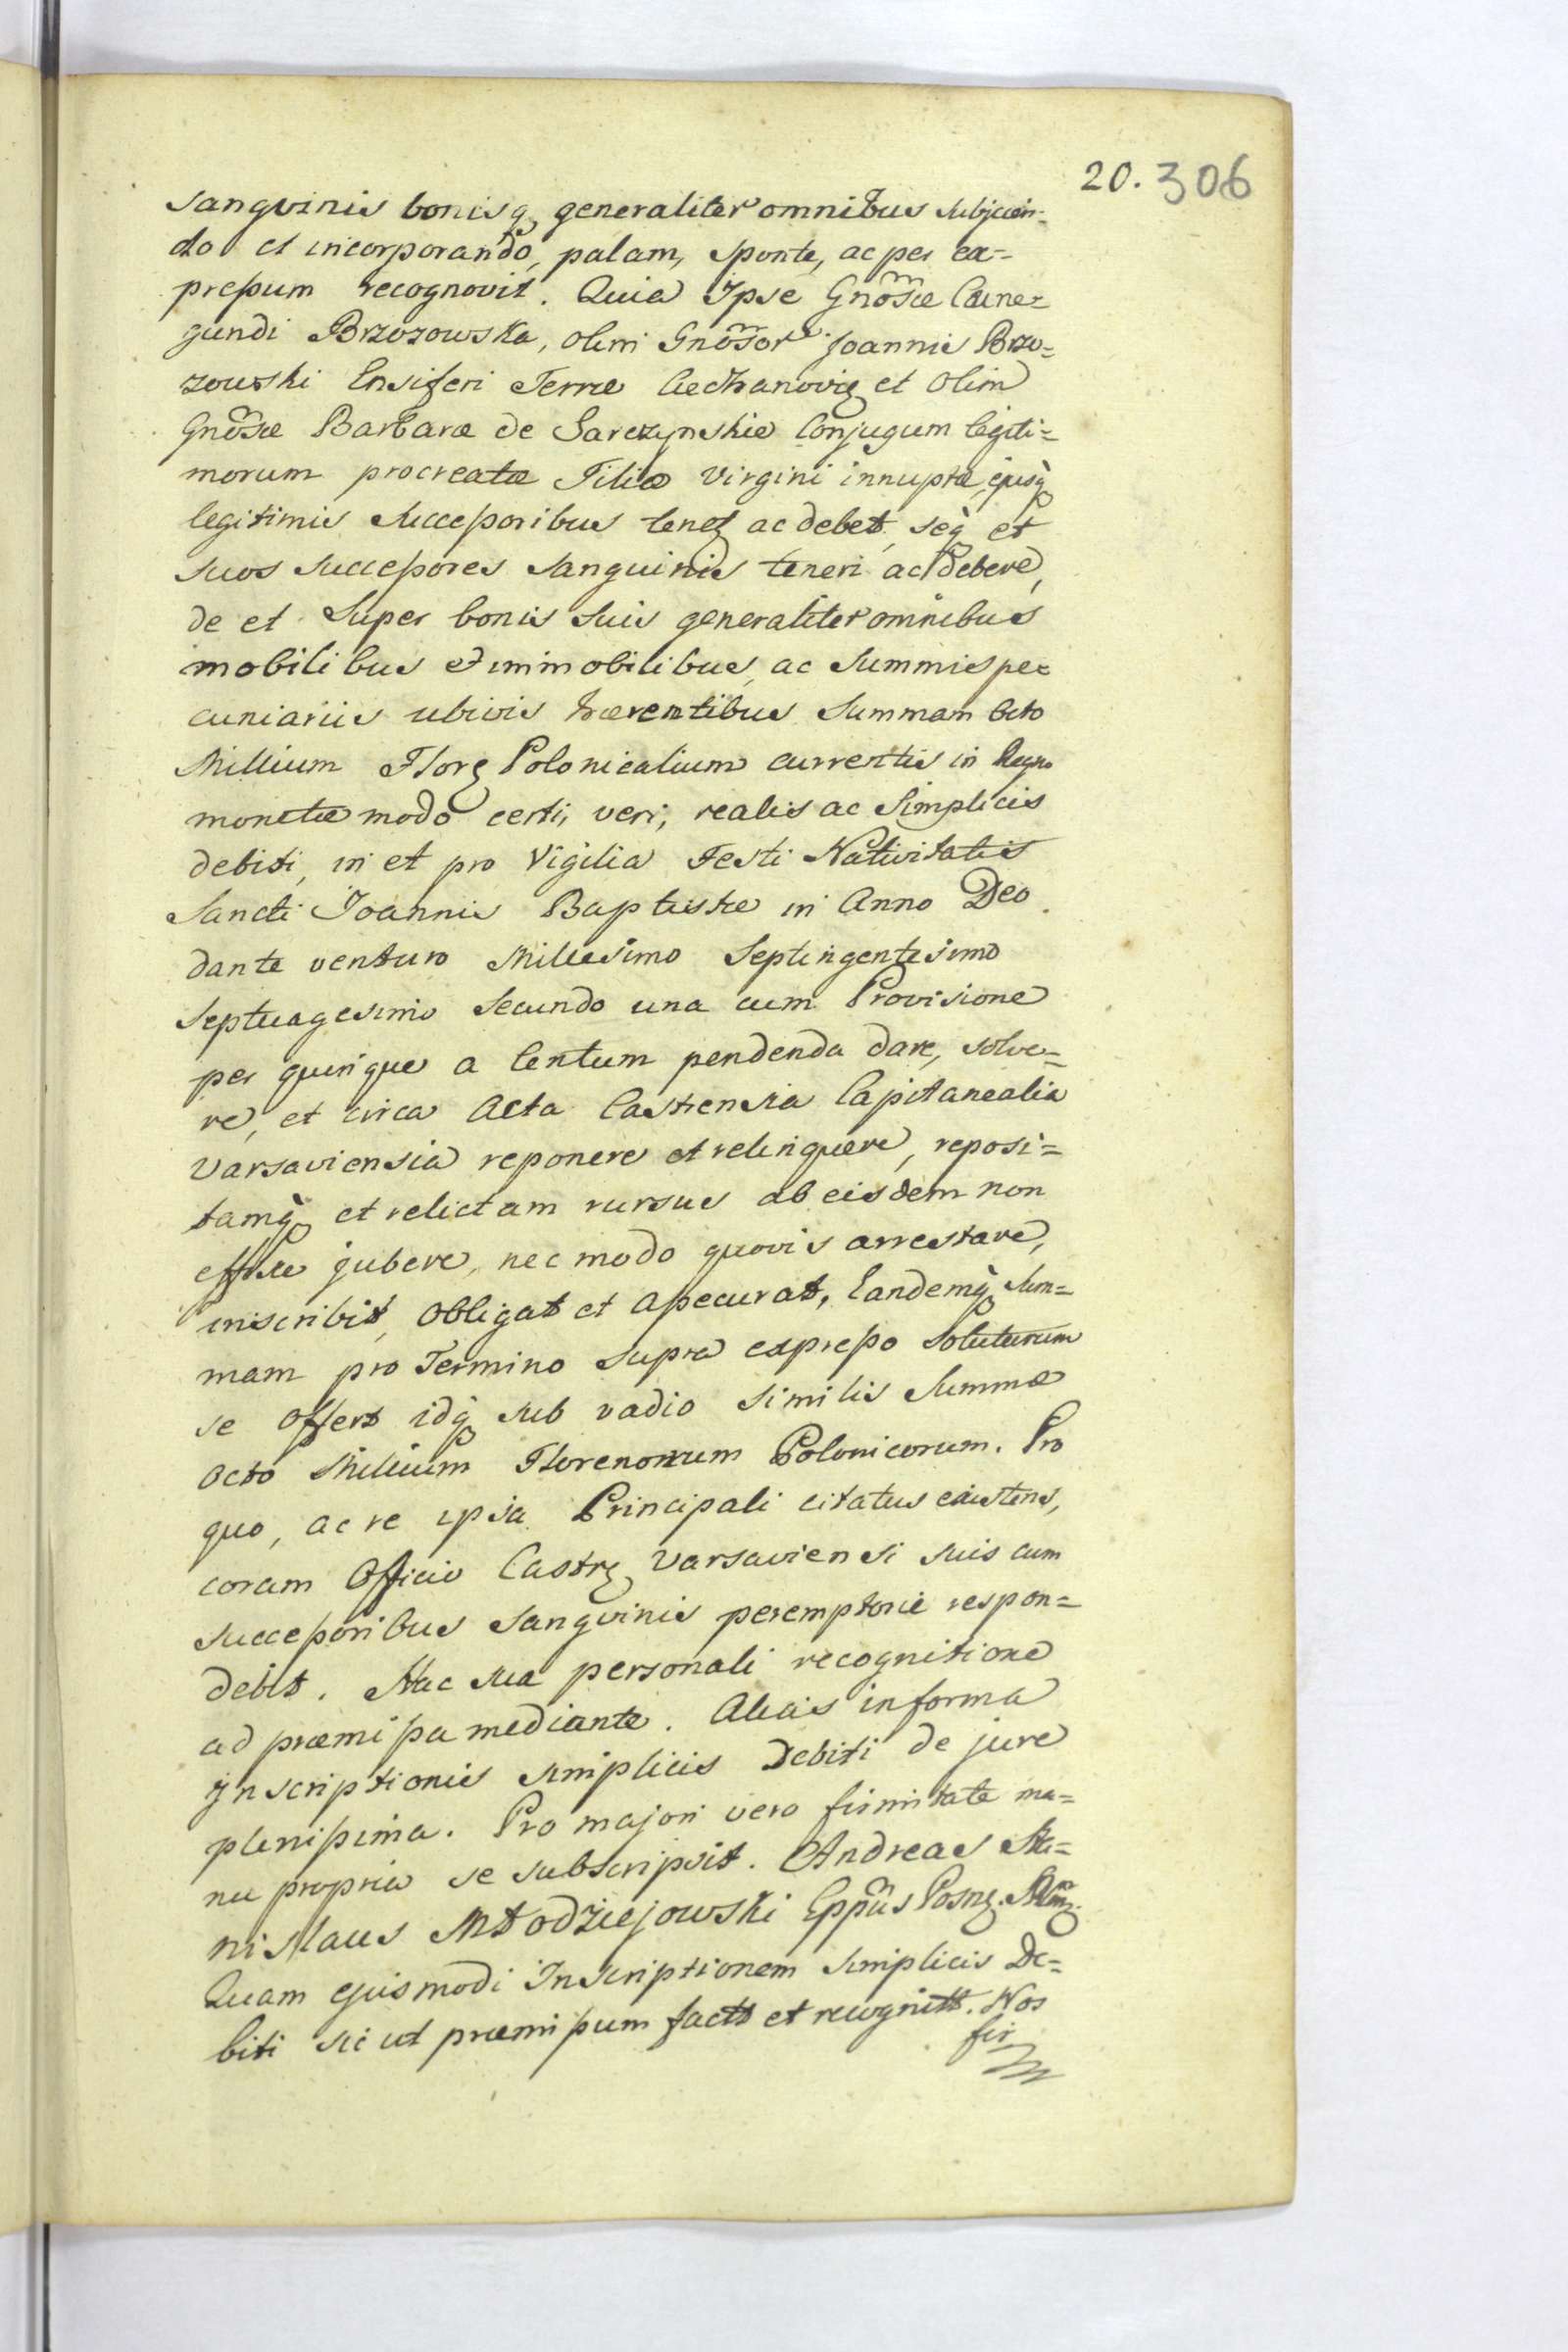 20. 306
sangvinis bonisq generaliter omnibus subjicien=
do et incorporando, palam, sponte, ac per ex=
pressum recognovit. Quia Ipse Gnosæ Cune=
gundi Brzozowska, olim Gnosor Joannis Brzo=
zowski Ensiferi Terræ Ciechanovię et olim
Gnosæ Barbaræ de Sarczynskie Conjugum legiti=
morum procreatæ Filiæ Virgini innuptæ, ejusq
legitimis successoribus tenet ac debet, seq et
suos successores sanguinis teneri ac debere,
de et super bonis suis generaliter omnibus
mobilibus et immobilibus, ac summis pe=
cuniariis ubivis hærentibus summam Octo
Millium Flor Polonicalium currentis in Regno
monetæ modo certi, veri, realis ac simplicis
debiti, in et pro Vigilia Festi Nativitatis
Sancti Joannis Baptistæ in Anno Deo
dante venturo Millesimo Septingentesimo
Septuagesimo Secundo una cum Provisione
per quinque a Centum pendenda dare, solve=
re, et circa Acta Castrensia Capitanealia
Varsaviensia reponere et relinquere, reposi=
tamq et relictam rursus ab eisdem non
jubere, nec modo quovis arrestare,
inscribit, obligat et assecurat, Eandemq sum=
mam pro Termino supra expresso soluturum
se offert idq sub vadio similis summæ
Octo Millium Florenorum Polonicorum. Pro
quo, ac re ipsa Principali citatus existens,
coram Officio Castr Varsaviensi suis cum
successoribus sangvinis peremptorie respon=
debit. Hac sua personali recognitione
ad præmissa mediante. Alias in forma
Inscriptionis simplicis Debiti de jure
plenissima. Pro majori vero firmitate ma=
nu propria se subscripsit. Andreas Sta=
nislaus Młodziejowski Eppus Posn.
Quam ejusmodi Inscriptionem simplicis De=
biti sic ut præmissum factt et recognitt. Nos
fir